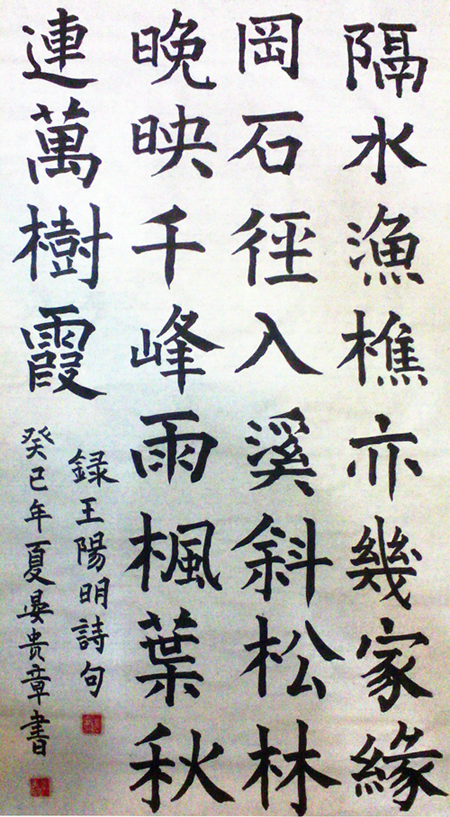 隔水漁樵亦幾家緣
岡石徑入溪斜松林
晚映千峰雨楓葉秋
連萬樹霞
録王陽明詩句
癸巳年夏晏贵章書